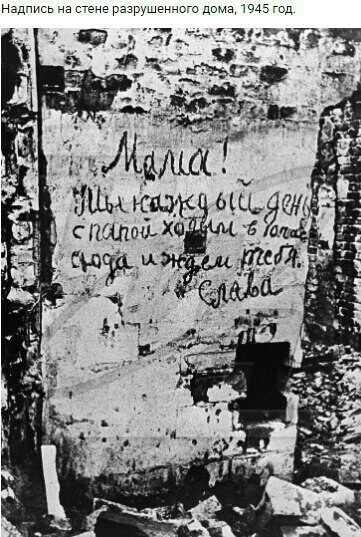 Надпись на стене разрушенного дома, 1945 год.
Мама!
Мы каждый день
с папой ходим в
сюда и ждем тебя.
Слава